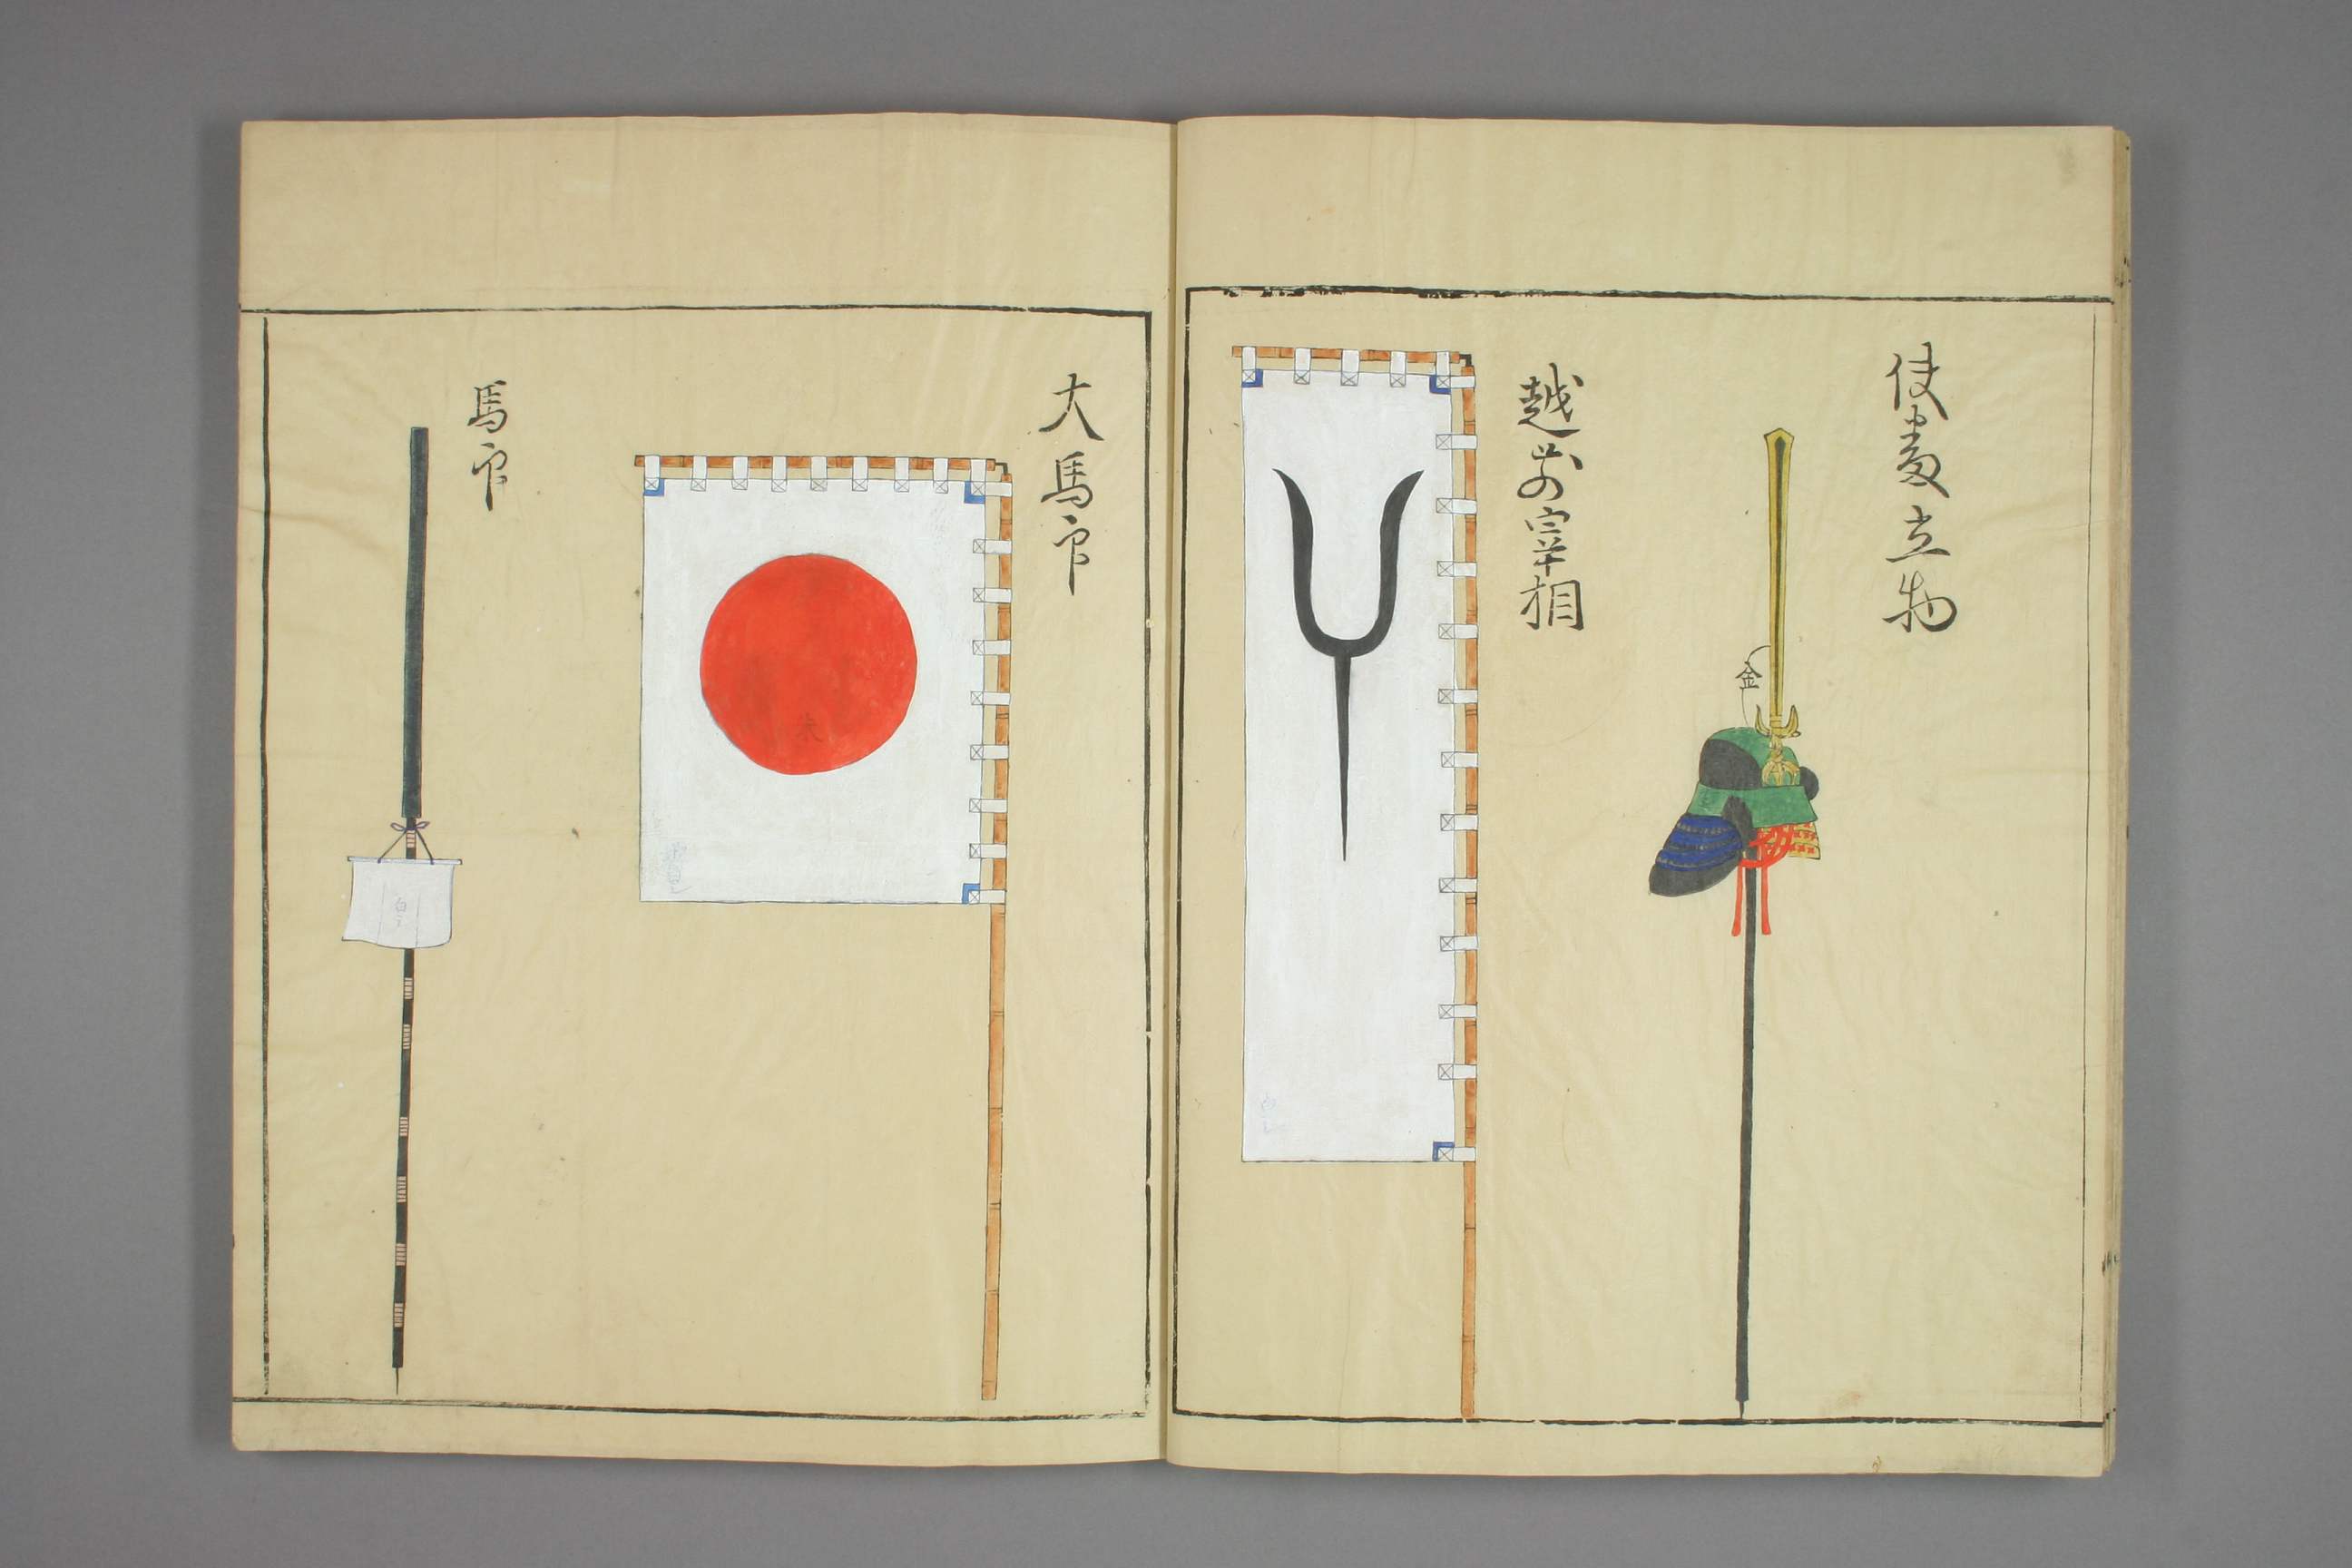 使番立物
金
越前宰相
大馬印
朱
馬印
白